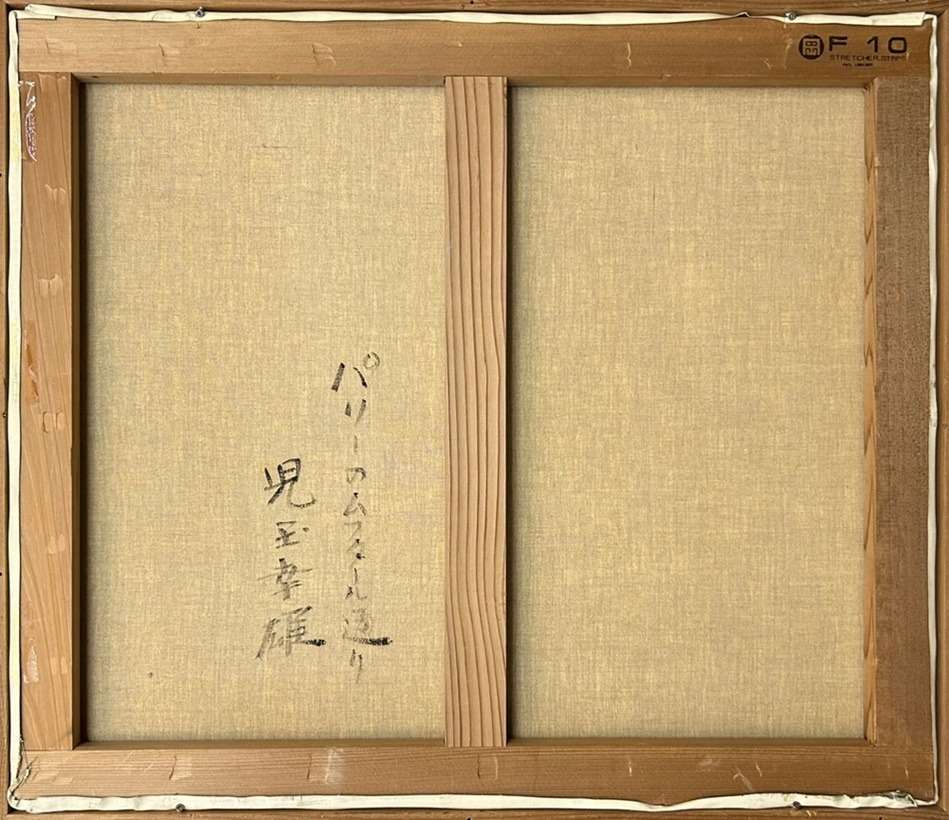 F 10
STRETCHER.STAR
パリーのムフタール通り
児玉幸雄